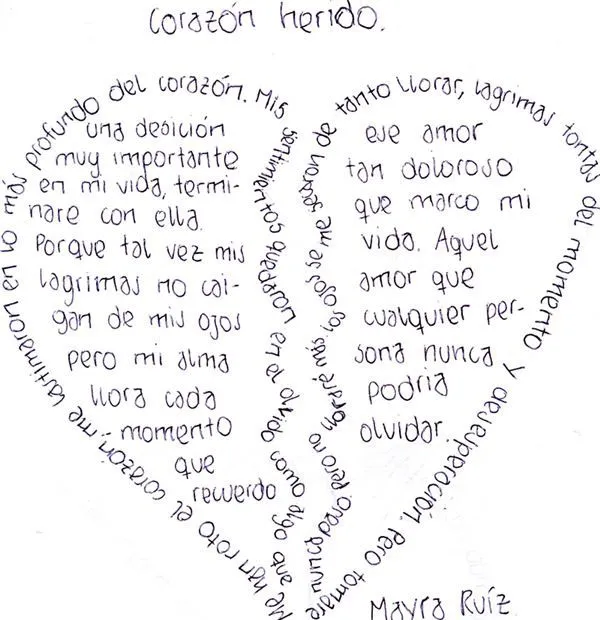 Corazón herido.
Me han roto el corazón; me lastimaron en lo más profundo del corazón. Mis
sentimietos quedaran en lo olvido como algo que
nunca paso pero no lloraré más, los ojos se me secaron de
tanto llorar, lagrimas tontas del momento y desesperación. Pero tomare
una desición
muy importante
en mi vida, termi-
nare con ella.
Porque tal vez mis
lagrimas no cai-
gan de mis ojos
pero mi alma
llora cada
momento
que
recuerdo
ese amor
tan doloroso
que marco mi
vida. Aquel
amor que
cualquier per-
sona nunca
podria
olvidar.
Mayra Ruíz